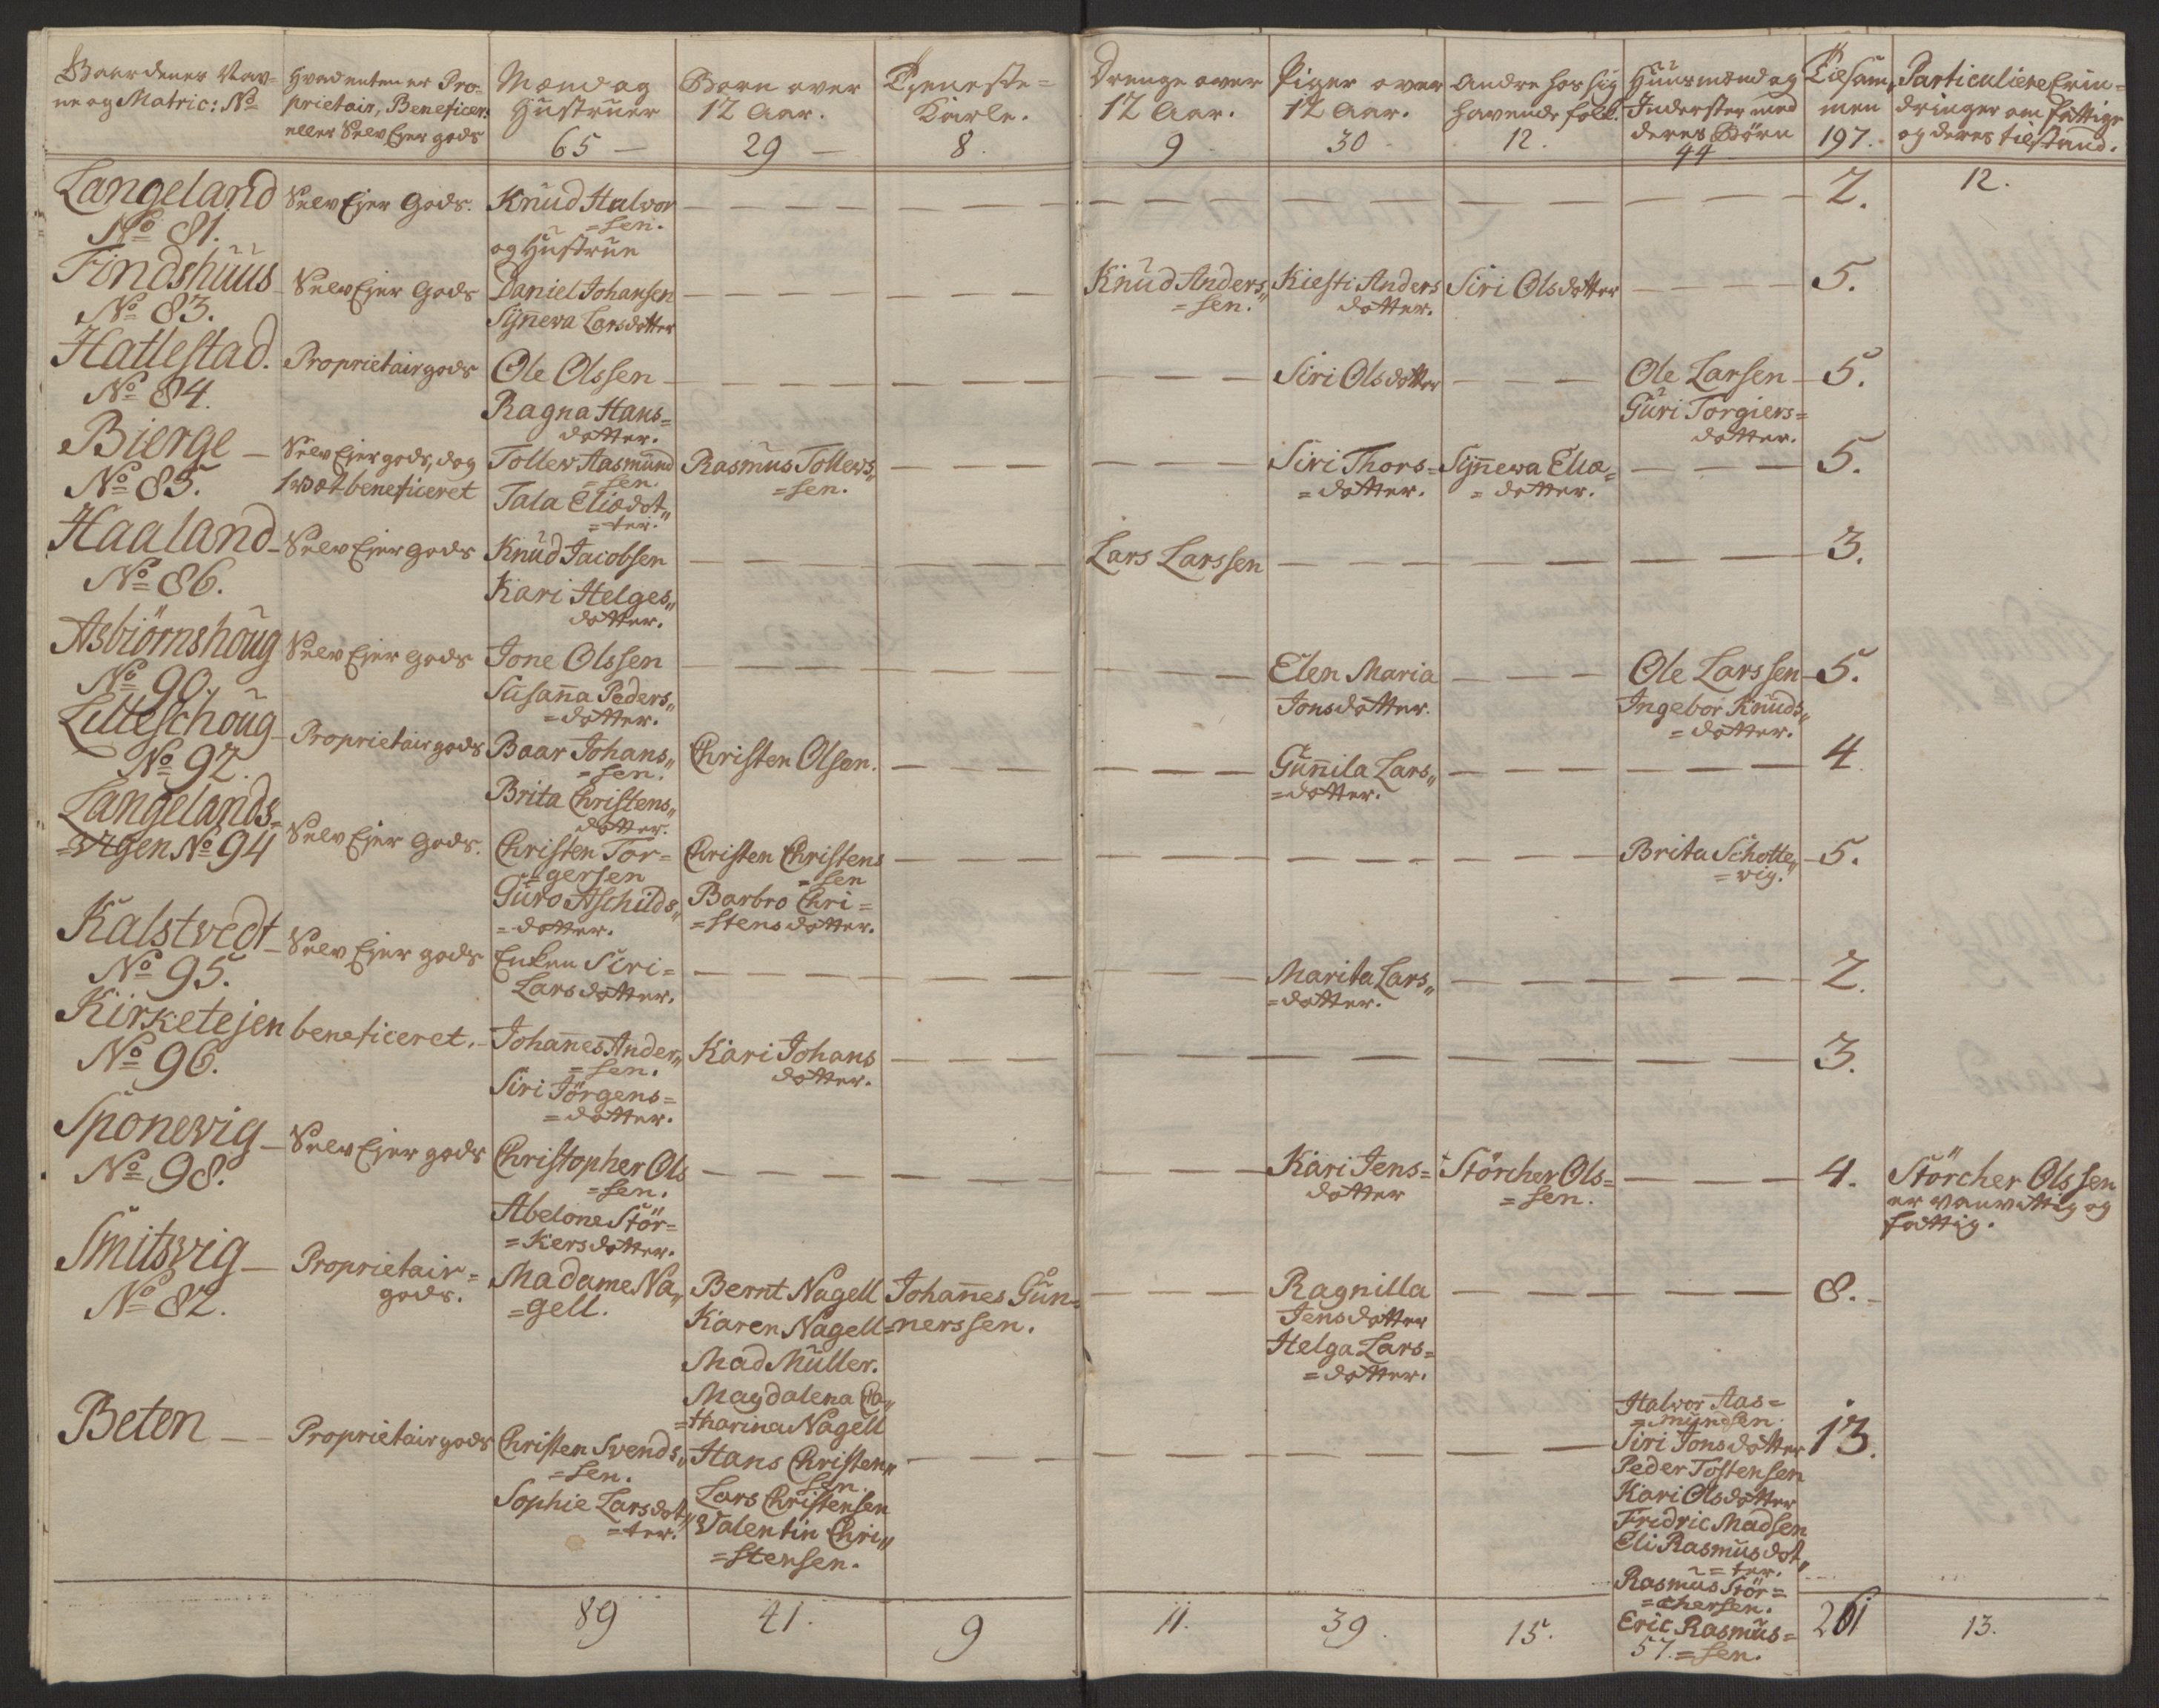 Gaardenes Nav=
ne og Matric: No
Hvad enten er Pro=
prietair, Beneficer:
eller Selv Ejer gods
Mænd og
Hustruer
65 —
Børn over
12 Aar.
29 —
Tieneste=
Karle.
8.
Drenge over
12 Aar.
9
Piger over
12 Aar.
30
Andre hos sig
havende folk.
12.
Huusmænd og
Inderster med
deres Börn
44
Tilsam„
men
197.
Particuliere Erin=
dringer om fattige
og deres tilstand.
12.
Langeland
No 81.
Selv Ejer Gods.
Knud Halvor
=sen.
og Hustrue
— — — 2.
Findshuus
No 83.
Selv Ejer Gods
Daniel Johansen
Syneva Larsdotter
Knud Anders„
=sen.
Kiesti Anders
dotter.
Siri Olsdotter
— — — 5.
Hatlestad.
No 84.
Proprietairgods
Ole Olssen
Ragna Hans=
dotter.
Siri Olsdotter
Ole Larsen
Guri Torgiers=
dotter.
5.
Bierge —
No 85.
Selv Ejer gods, dog
1 Wet beneficeret
Tollew Aasmund
=sen.
Tala Eliædot„
=ter.
Rasmus Tollews„
=sen.
Siri Thors=
=dotter.
Syneva Eliæ=
=dotter.
5.
Haaland
No 86.
Selv Ejer gods
Knud Jacobsen
Kari Helges„
dotter.
Lars Larssen
3.
Asbiörnshoug
No 90.
Selv Ejer gods
Jone Olssen
Susana Peders„
=dotter.
Elen Maria
Jonsdotter.
Ole Larssen
Ingebor Knuds„
=dotter.
5.
Litleschoug
No 92.
Proprietair gods
Baar Johans„
=sen.
Brita Christens„
dotter.
Christen Olsen.
Gunila Lars„
=dotter.
4
Langelands=
=Vigen No 94
Selv Ejer Gods.
Christen Tor=
=gersen
Guro Aschilds„
=dotter.
Christen Christens
=sen
Barbro Chri=
=stensdotter.
Brita Schotte„
=vig.
5.
Kalstvedt
No 95.
Selv Ejer gods
Enken Siri=
Larsdotter.
Marita Lars„
=dotter.
2.
Kirketejen
No 96.
beneficeret.
Johanes Ander„
=sen.
Siri Jörgens=
=dotter.
Kari Johans
dotter.
3.
Sponevig
No 98.
Selv Ejer gods
Christopher Ols
=sen.
Abelone Stör=
=kersdotter.
Kari Jens=
dotter
Störcher Ols=
=sen.
4.
Störcher Olssen
er vanvittig og
fattig.
Smitsvig
No 82.
Proprietair=
gods.
Madame Na„
=gell.
Bernt Nagell
Karen Nagell
Mad Müller.
Magdalena Ca„
=tharina Nagell
Johanes Gun=
=nerssen.
Ragnilla
Jensdotter
Helga Lars=
=dotter.
8.
Beten
Proprietairgods
Christen Svends„
=sen.
Sophie Larsdot„
=ter.
Hans Christen„
sen.
Lars Christensen
Valentin Chri„
=stensen.
Halvor Aas=
=mundsen.
Siri Jonsdotter
Peder Tostensen
Kari Olsdotter
Fridric Madsen
Eli Rasmusdot„
=ter.
Rasmus Stör=
=chersen.
Eric Rasmus=
=sen.
13.
89
41.
9
11.
39.
15.
57.
261
13.